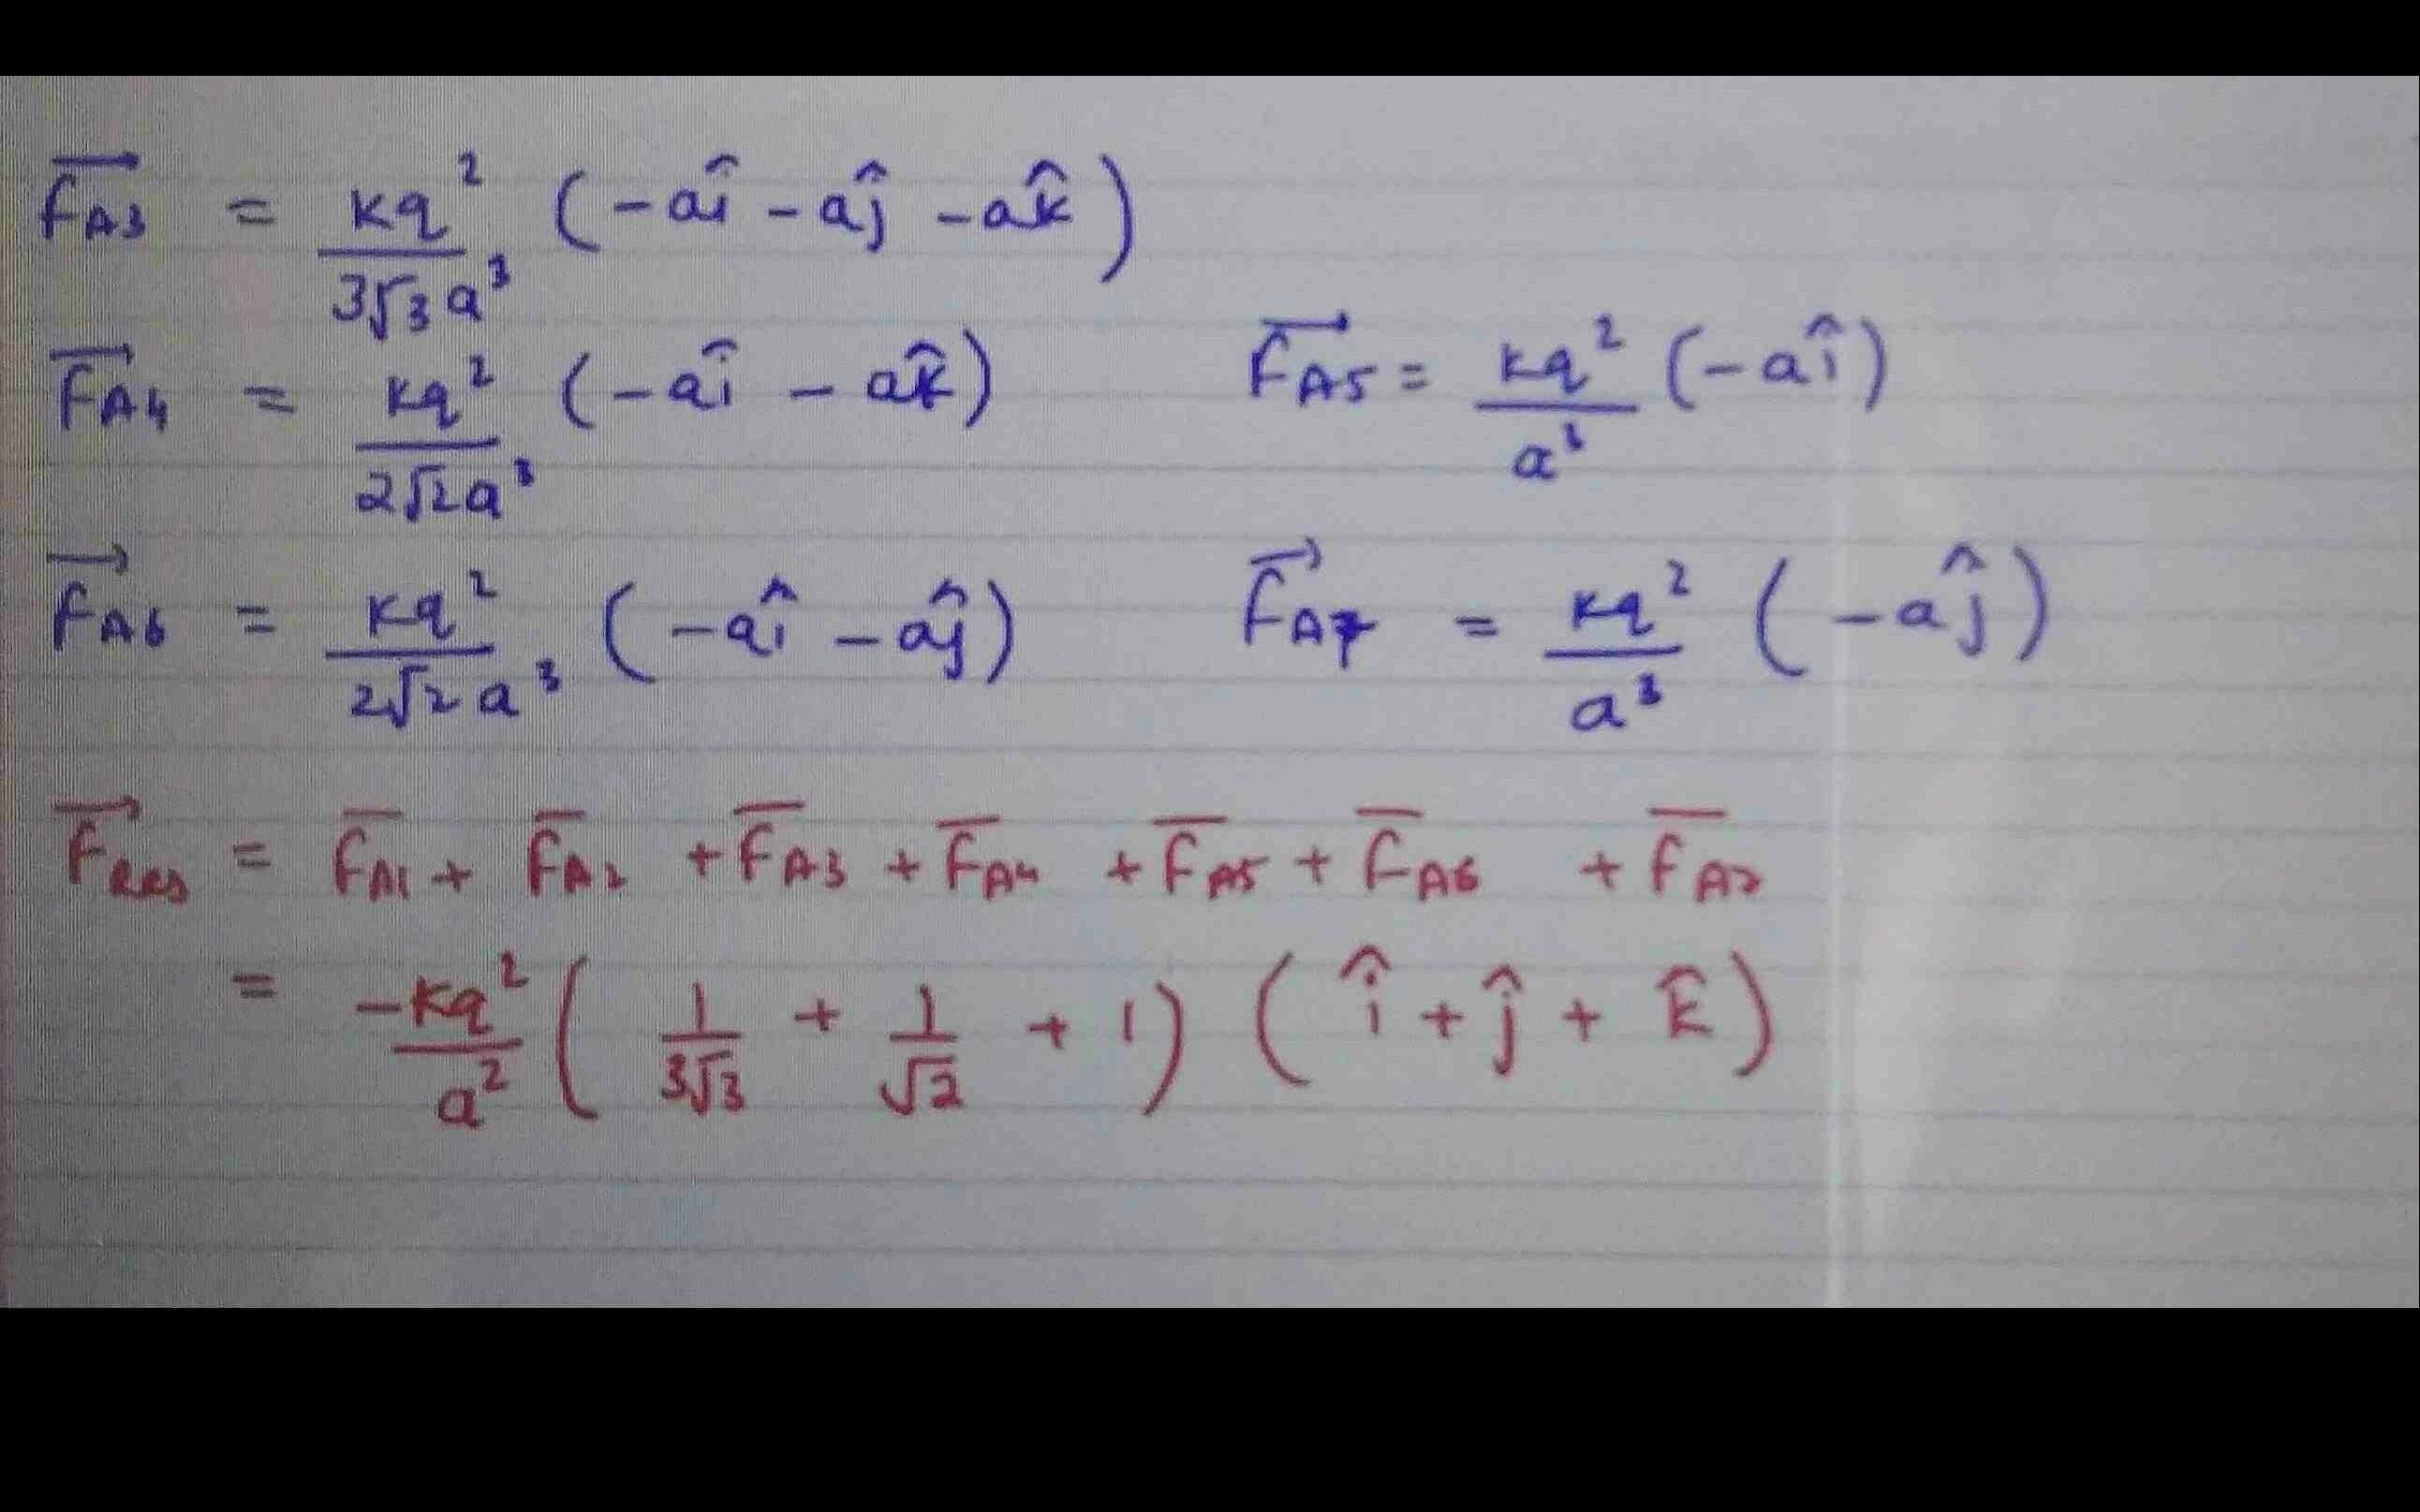 F⃗_A3 = kq²/(3√3 a³) (-aî - aĵ - ak̂)
F⃗_A4 = kq²/(2√2 a³) (-aî - ak̂)    F⃗_A5 = kq²/a³ (-aî)
F⃗_A6 = kq²/(2√2 a³) (-aî - aĵ)    F⃗_A7 = kq²/a³ (-aĵ)
F⃗_Res = F̅_A1 + F̅_A2 + F̅_A3 + F̅_A4 + F̅_A5 + F̅_A6 + F̅_A7
= -kq²/a² (1/(3√3) + 1/√2 + 1) (î + ĵ + k̂)